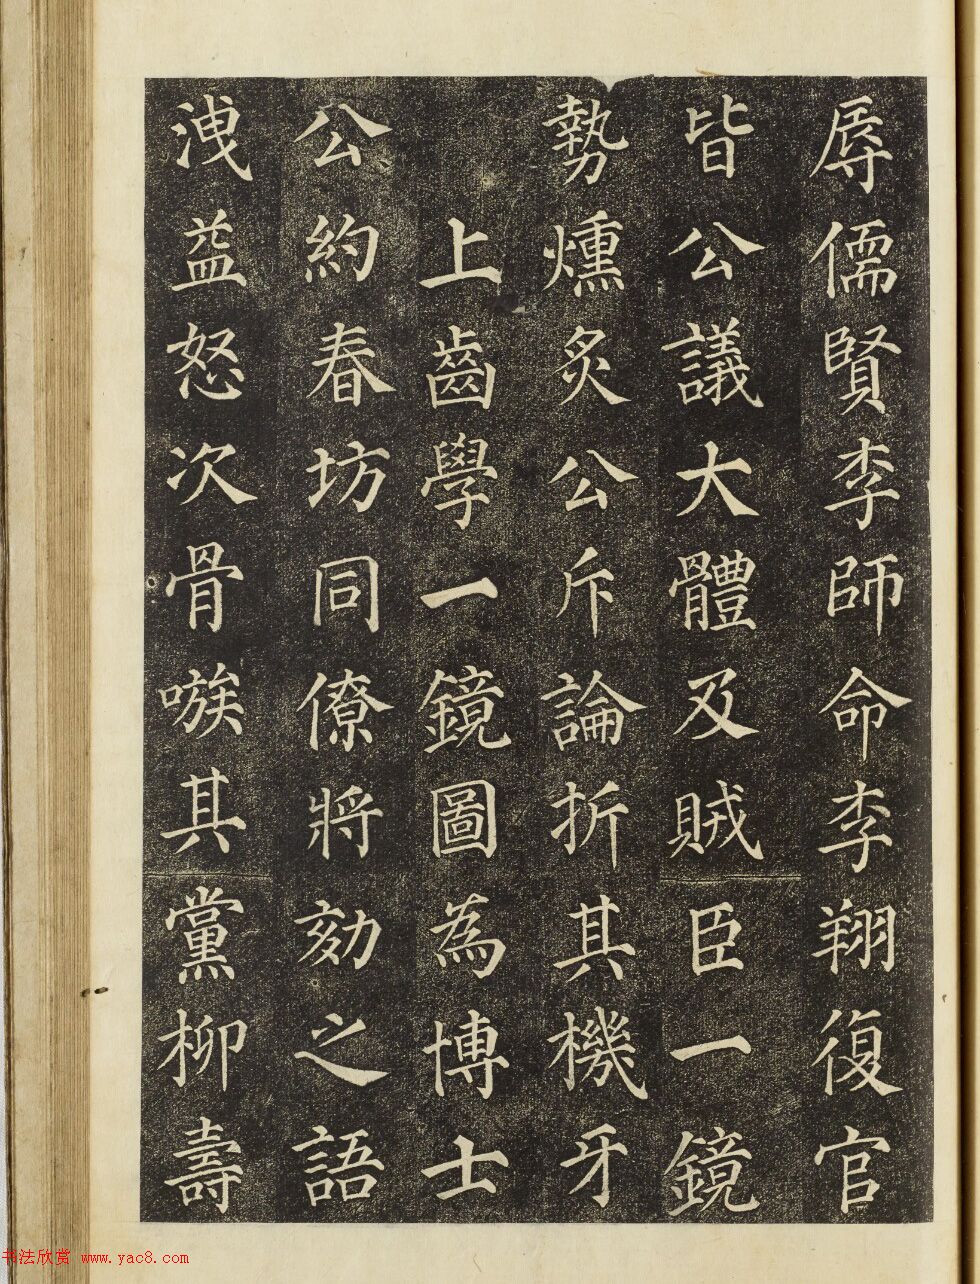 辱儒賢李師命李翔復官
皆公議大體及賊臣一鏡
勢燻炙公斥論折其機牙
上齒學一鏡圖為博士
公約春坊同僚將効之語
洩益怒次骨嗾其黨柳壽
书法欣赏 www.yac8.com